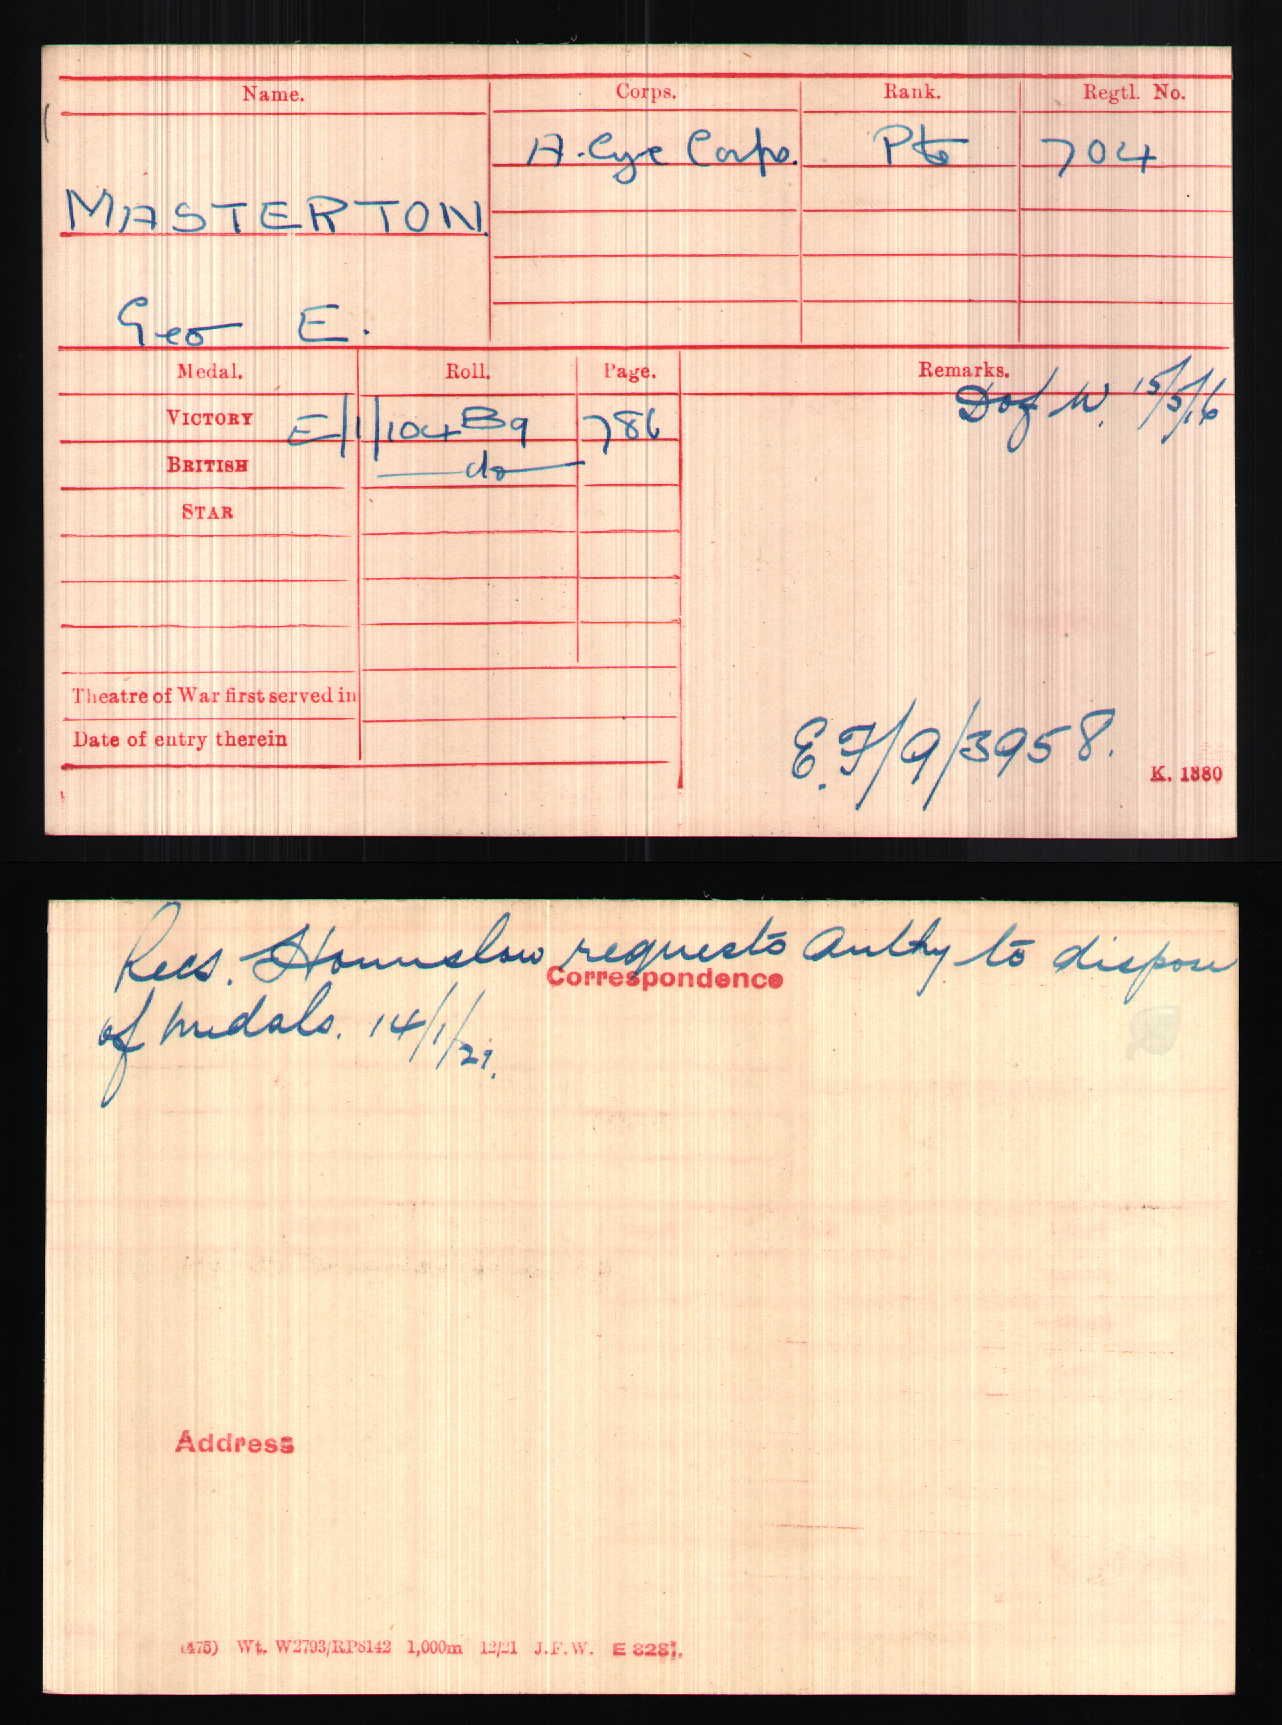 Name. Corps. Rank. Regtl. No.
A. Cyc Corps. Pte 704
MASTERTON
Geo E.
Medal. Roll. Page. Remarks.
D of W. 15/5/16
VICTORY E/1/104 B9 786
BRITISH do
STAR
Theatre of War first served in
Date of entry therein
E.F/9/3958.
K. 1380
Recs. Hounslow requests Authy to dispose
Correspondence
of medals. 14/1/21.
Address
(475) Wt. W2793/RP8142 1,000m 12/21 J.F.W.